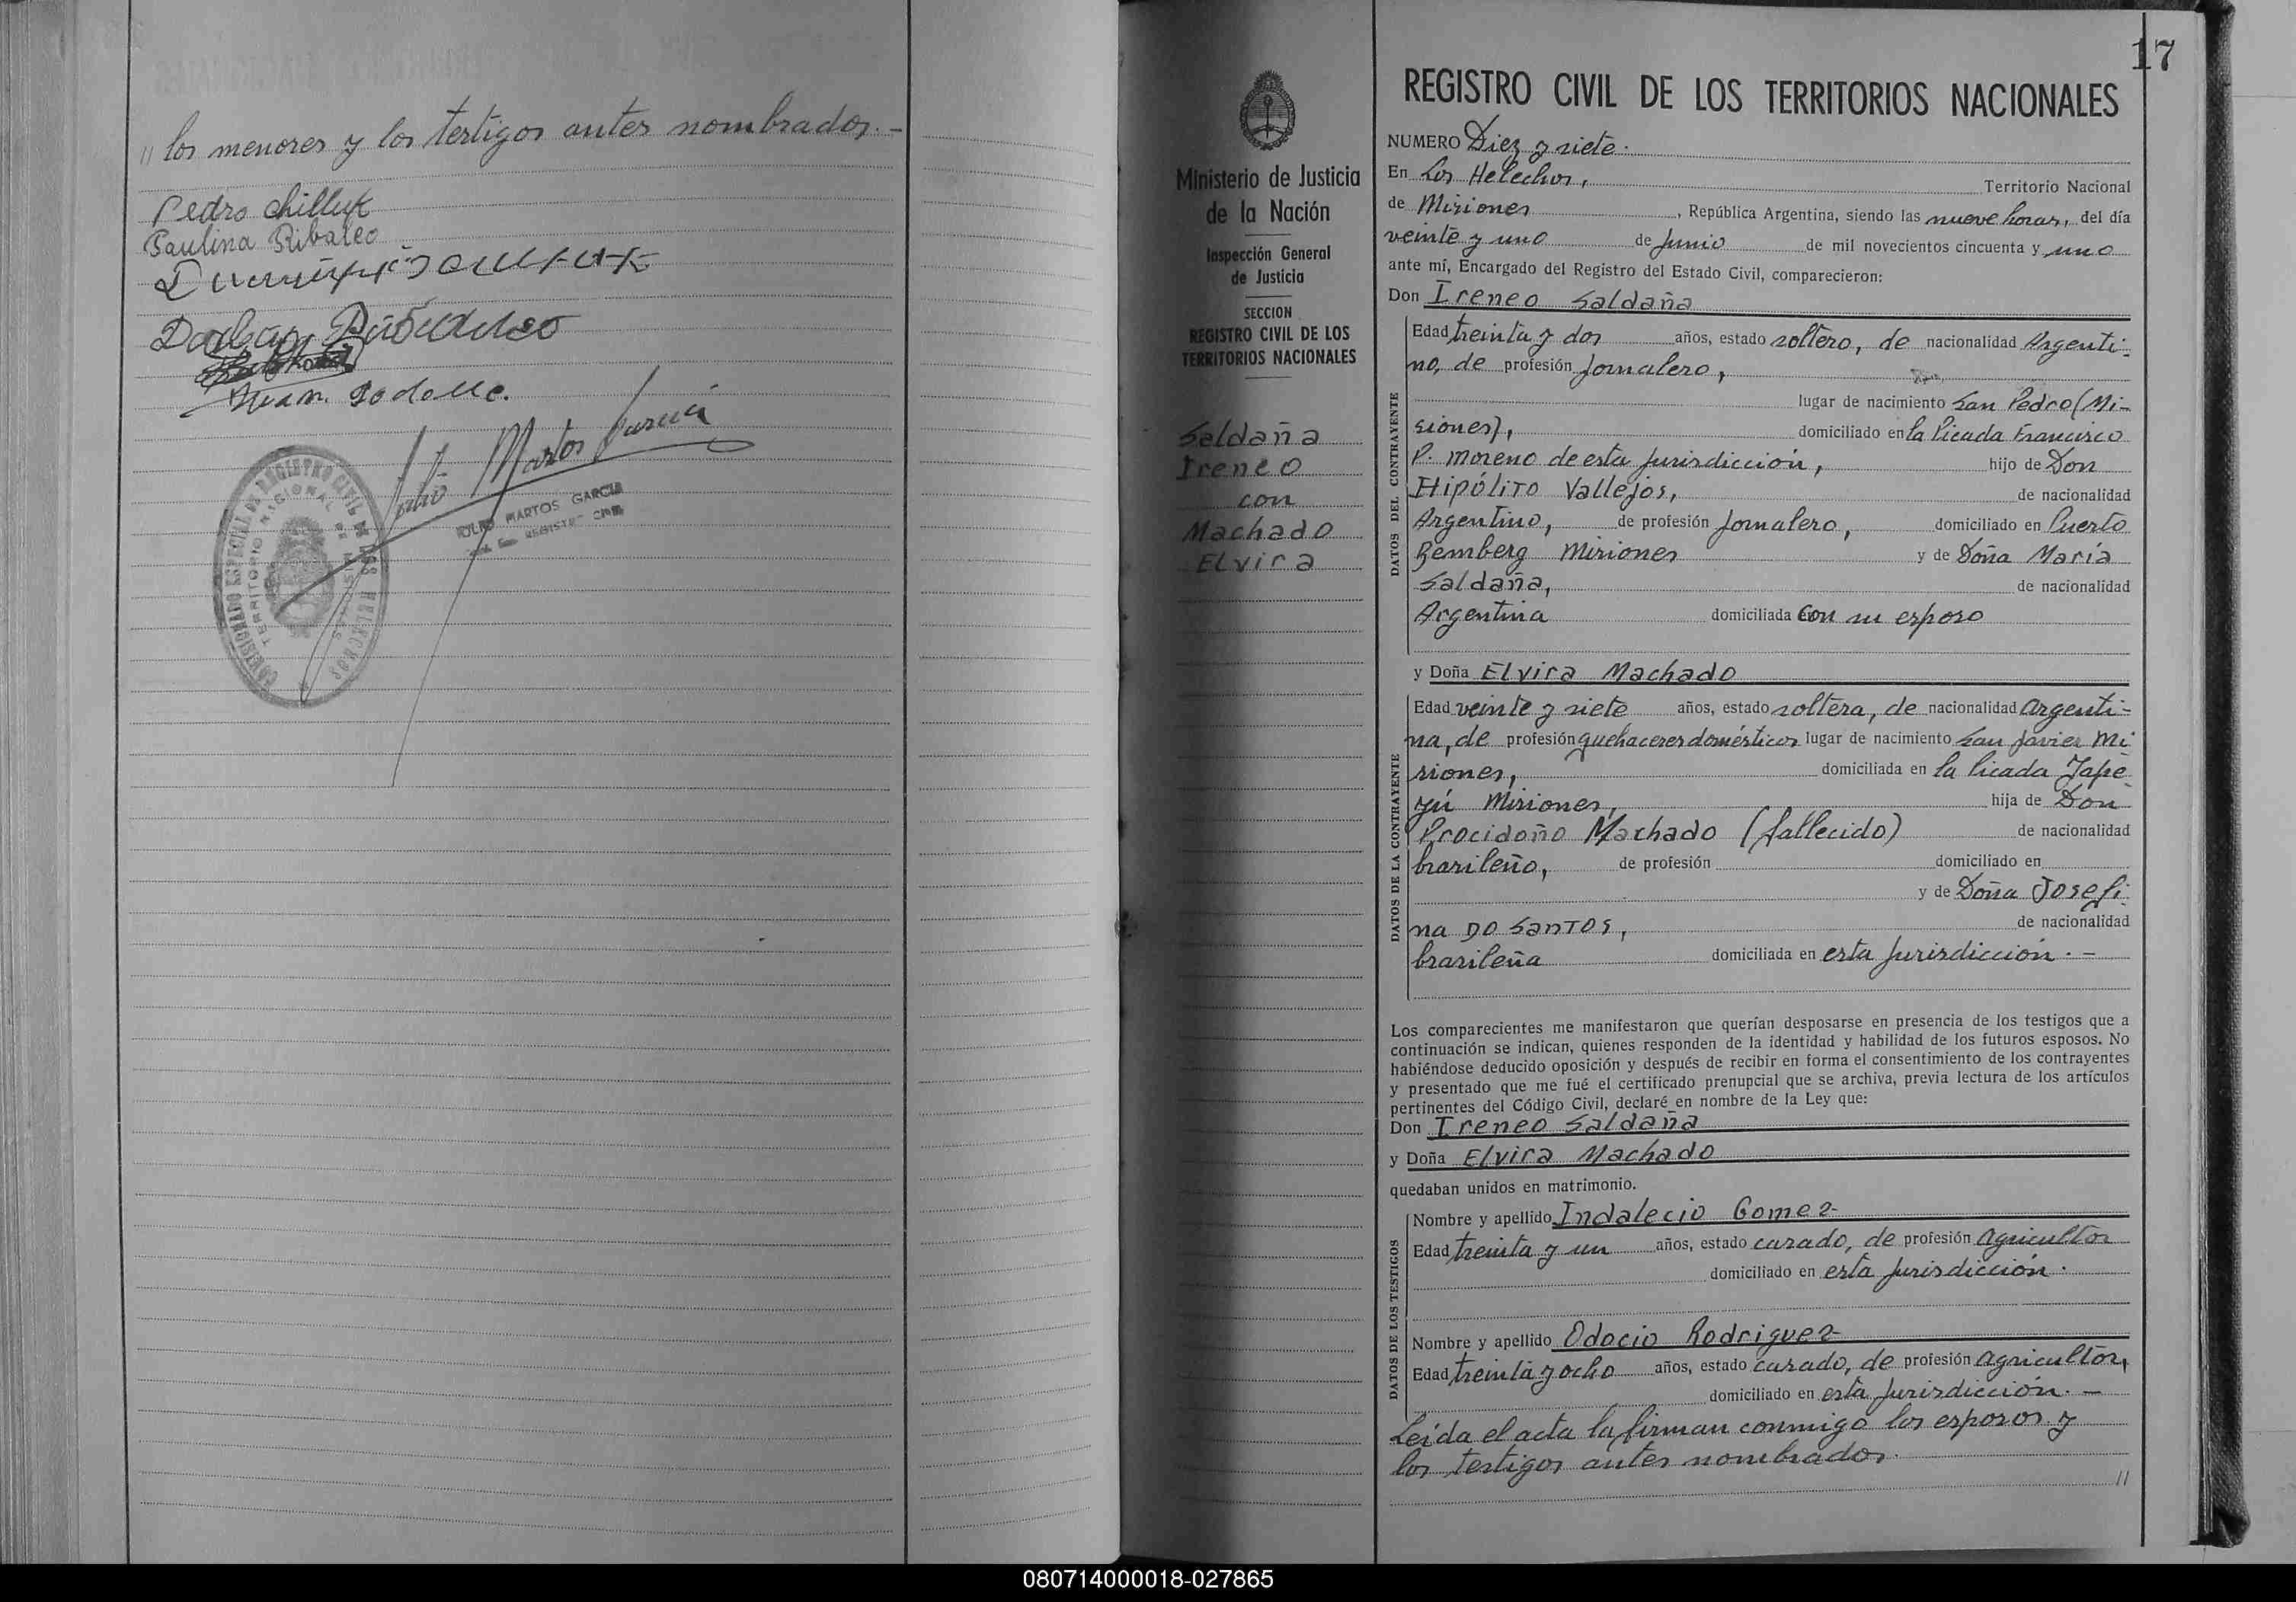 " los menores y los testigos antes nombrados.-
Pedro Chilluk
Paulina Ribaleo
Juan
Julio Martos García
JULIO MARTOS GARCIA
REGISTRO CIVIL
COMISIONADO ESPECIAL DE REGISTRO CIVIL DE LOS HELECHOS
TERRITORIO NACIONAL DE MISIONES
17
Ministerio de Justicia
de la Nación
Inspección General
de Justicia
SECCION
REGISTRO CIVIL DE LOS
TERRITORIOS NACIONALES
Saldaña
Ireneo
con
Machado
Elvira
REGISTRO CIVIL DE LOS TERRITORIOS NACIONALES
NUMERO Diez y siete.
En Los Helechos, Territorio Nacional
de Misiones, República Argentina, siendo las nueve horas, del día
veinte y uno de Junio de mil novecientos cincuenta y uno
ante mí, Encargado del Registro del Estado Civil, comparecieron:
Don Ireneo Saldaña
DATOS DEL CONTRAYENTE
Edad treinta y dos años, estado soltero, de nacionalidad Argenti-
no, de profesión Jornalero,
lugar de nacimiento San Pedro (Mi-
siones), domiciliado en la Picada Francisco
P. Moreno de esta Jurisdicción, hijo de Don
Hipólito Vallejos, de nacionalidad
Argentino, de profesión Jornalero, domiciliado en Puerto
Bemberg Misiones y de Doña María
Saldaña, de nacionalidad
Argentina domiciliada con su esposo
y Doña Elvira Machado
DATOS DE LA CONTRAYENTE
Edad veinte y siete años, estado soltera, de nacionalidad Argenti-
na, de profesión quehaceres domésticos lugar de nacimiento San Javier Mi
siones, domiciliada en la Picada Yape
yú Misiones, hija de Don
Procidoño Machado (fallecido) de nacionalidad
brasileño, de profesión domiciliado en
y de Doña Josefi-
na Do Santos, de nacionalidad
brasileña domiciliada en esta Jurisdicción.-
Los comparecientes me manifestaron que querían desposarse en presencia de los testigos que a
continuación se indican, quienes responden de la identidad y habilidad de los futuros esposos. No
habiéndose deducido oposición y después de recibir en forma el consentimiento de los contrayentes
y presentado que me fué el certificado prenupcial que se archiva, previa lectura de los artículos
pertinentes del Código Civil, declaré en nombre de la Ley que:
Don Ireneo Saldaña
y Doña Elvira Machado
quedaban unidos en matrimonio.
DATOS DE LOS TESTIGOS
Nombre y apellido Indalecio Gomez
Edad treinta y un años, estado casado, de profesión Agricultor
domiciliado en esta Jurisdicción.
Nombre y apellido Odocio Rodriguez
Edad treinta y ocho años, estado casado, de profesión Agricultor,
domiciliado en esta Jurisdicción.-
Leída el acta la firman conmigo los esposos y
los testigos antes nombrados.
"
080714000018-027865